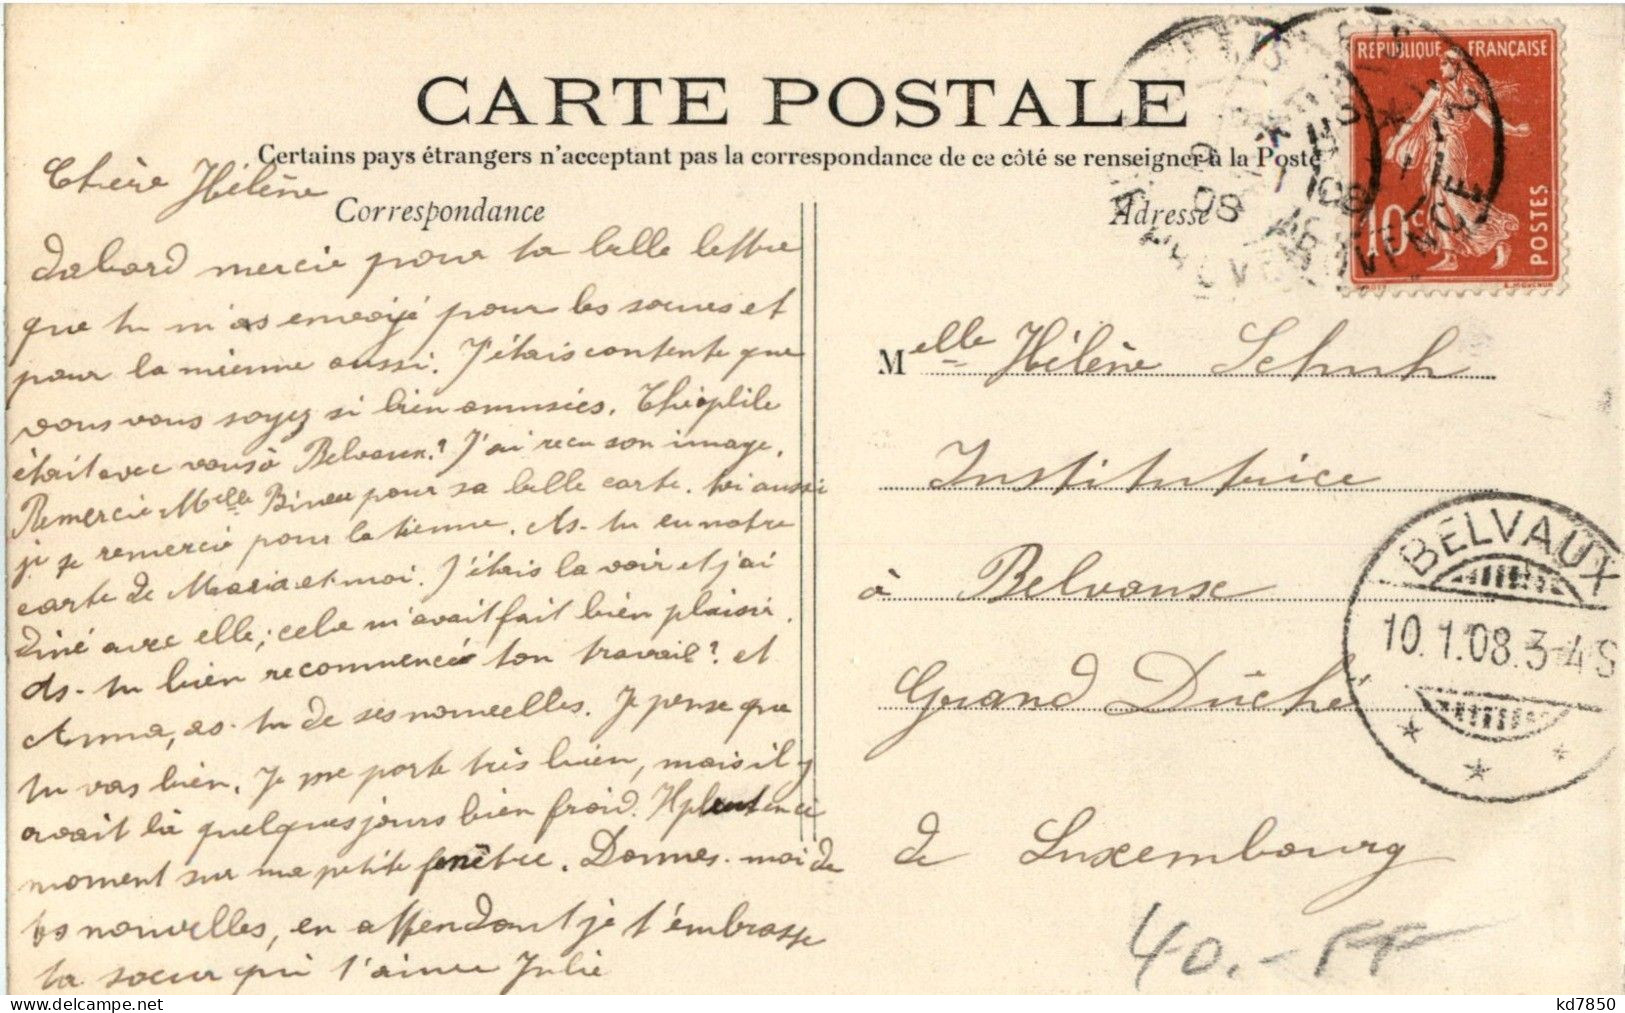 CARTE POSTALE
Certains pays étrangers n'acceptant pas la correspondance de ce côté se renseigner à la Poste
Correspondance
Adresse
Chère Hélène
dabard mercie pour ta belle lettre
que tu m'as envoyé pour les soeures et
pour la mienne aussi. J'étais contente que
vous vous soyez si bien amusées. Théoplile
était avec vous à Belvaux? J'ai recu son image.
Remercie Melle pour sa belle carte. toi aussi
je te remercie pour la tienne. As-tu eu notre
carte de Maria et moi. J'étais la voir et j'ai
diné avec elle; cela m'avait fait bien plaisir.
As-tu bien recommencée ton travail? et
Anna, as-tu de ses nouvelles. Je pense que
tu vas bien. Je me porte très bien, mais il y
avait là quelques jours bien froid. Il pleut en ce
moment sur ma petite fenêtre. Donnes-moi de
tes nouvelles, en attendant je t'embrasse
ta soeur qui t'aime Julie
Melle Hélène Schuh
Institutrice
à Belvaux
Grand Dûché
de Luxembourg
REPUBLIQUE FRANÇAISE
10c
POSTES
BELVAUX
10.1.08.3-4S
40.-FF
kd7850